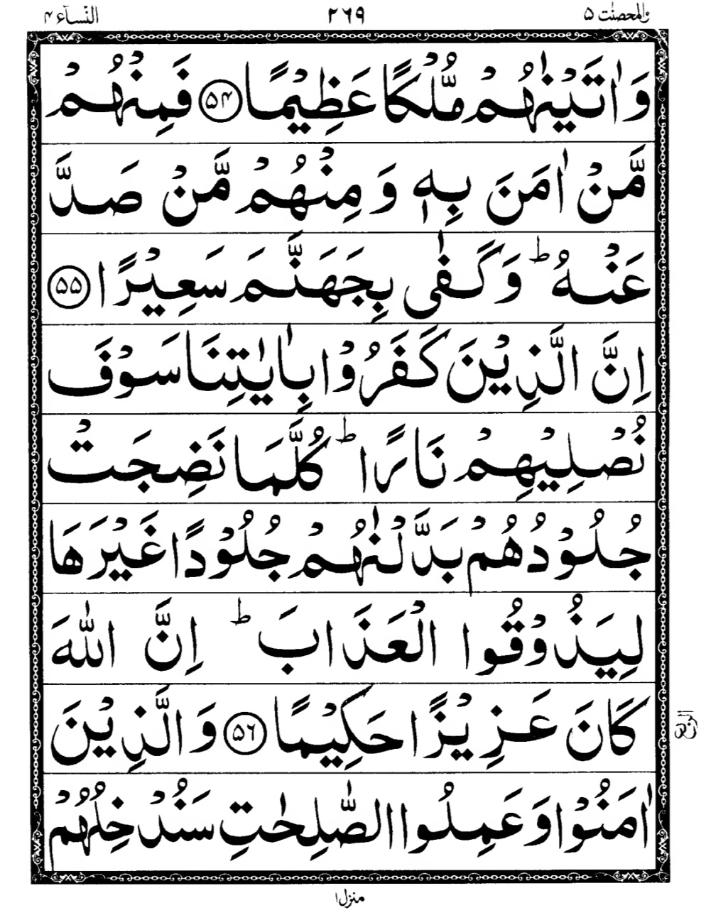 والمحصنٰت ۵ ۲۶۹ النسآء ۴
وَاٰتَيْنٰهُمْ مُّلْكًا عَظِيْمًا ﴿۵۴﴾ فَمِنْهُمْ
مَّنْ اٰمَنَ بِهٖ وَ مِنْهُمْ مَّنْ صَدَّ
عَنْهُ ؕ وَ كَفٰى بِجَهَنَّمَ سَعِيْرًا ﴿۵۵﴾
اِنَّ الَّذِيْنَ كَفَرُوْا بِاٰيٰتِنَا سَوْفَ
نُصْلِيْهِمْ نَارًا ؕ كُلَّمَا نَضِجَتْ
جُلُوْدُهُمْ بَدَّلْنٰهُمْ جُلُوْدًا غَيْرَهَا
لِيَذُوْقُوا الْعَذَابَ ؕ اِنَّ اللّٰهَ
كَانَ عَزِيْزًا حَكِيْمًا ﴿۵۶﴾ وَ الَّذِيْنَ
اٰمَنُوْا وَ عَمِلُوا الصّٰلِحٰتِ سَنُدْخِلُهُمْ
منزل ۱